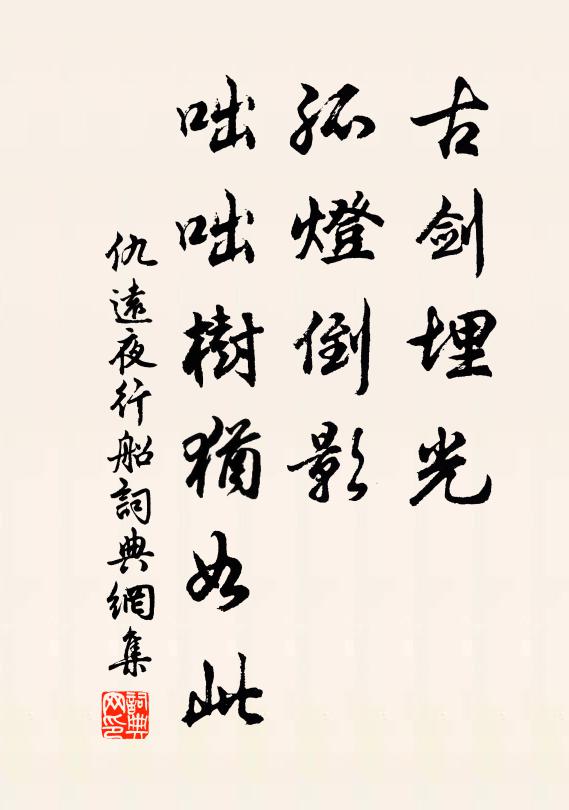 古劍埋光
孤燈倒影
咄咄樹猶如此
仇遠夜行船詞典網集
詞典
网印